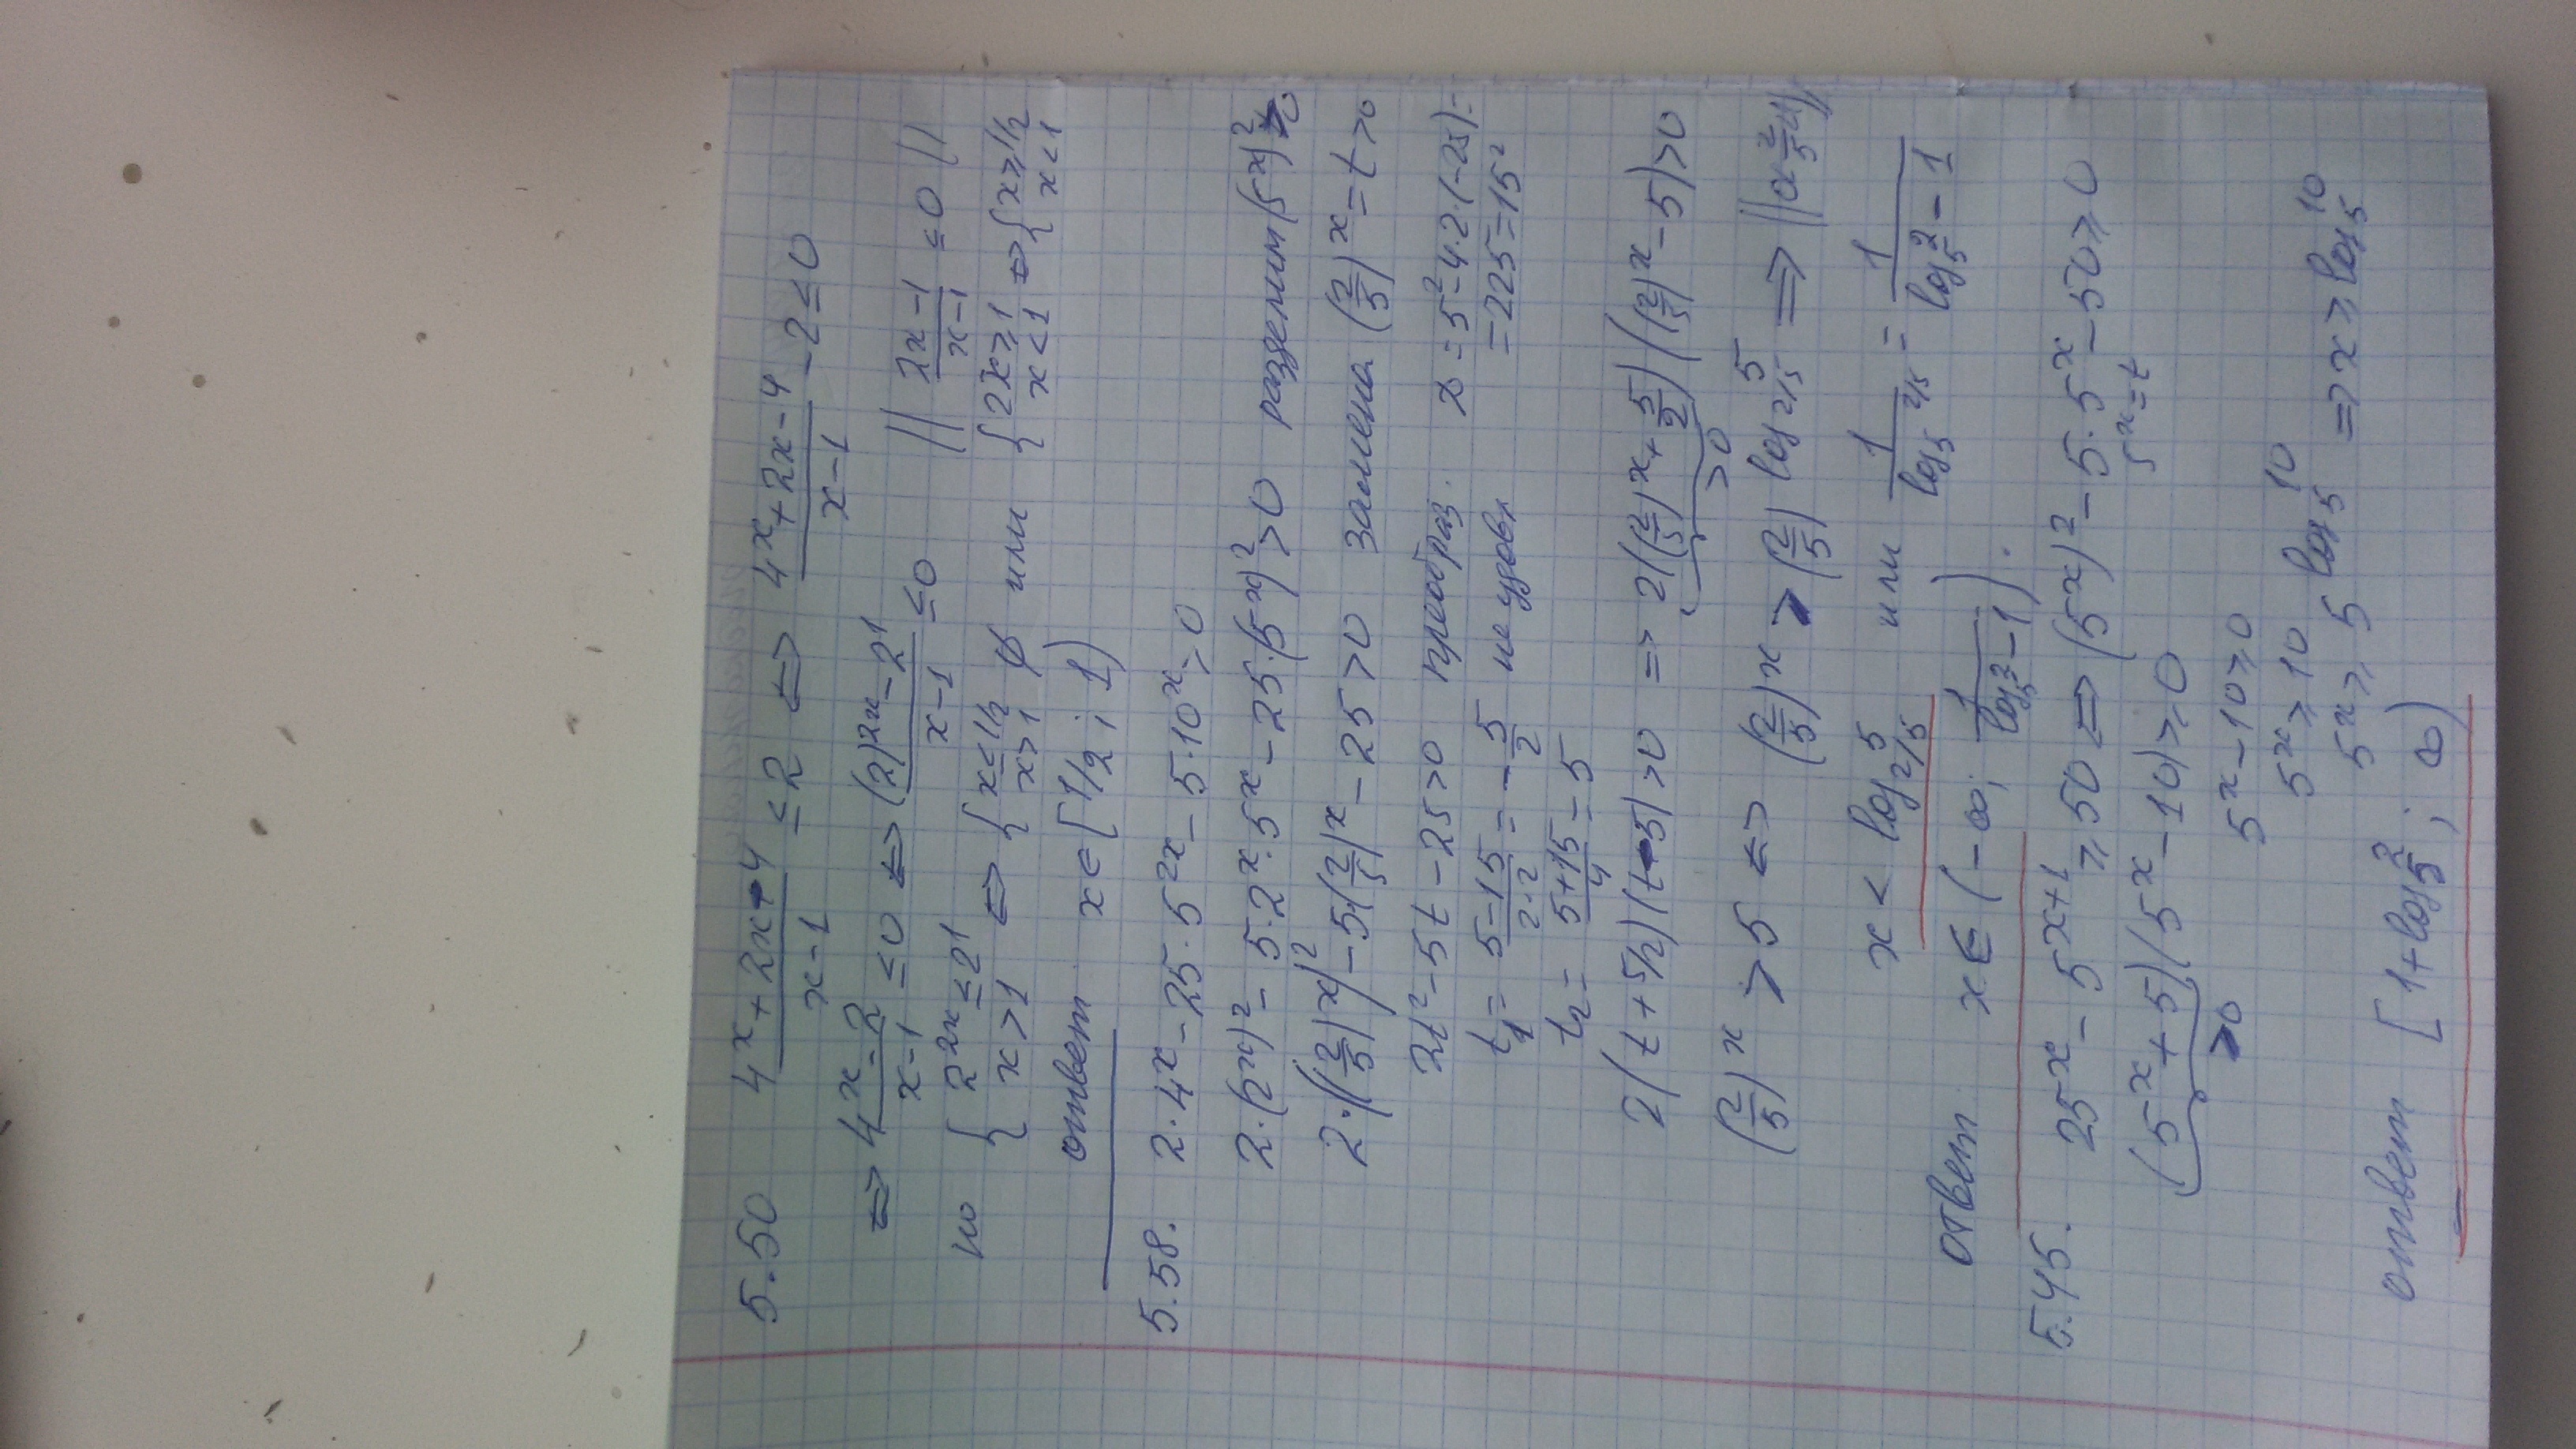 5.50 (4^x+2x-4)/(x-1) ≤ 2 ⇔ (4^x+2x-4)/(x-1) - 2 ≤ 0
⇔ (4^x-2)/(x-1) ≤ 0 ⇔ ((2)^2x - 2^1)/(x-1) ≤ 0 || (2x-1)/(x-1) ≤ 0 ||
но { 2^2x ≤ 2^1 x > 1 ⇔ { x ≤ 1/2 x > 1 ∅ или { 2x ≥ 1 x < 1 ⇔ { x ≥ 1/2 x < 1
ответ x ∈ [1/2 ; 1)
5.58. 2·4^x - 25·5^2x - 5·10^x > 0
2·(2^x)^2 - 5·2^x·5^x - 25·(5^x)^2 > 0 разделим (5^x)^2 > 0
2·((2/5)^x)^2 - 5·(2/5)^x - 25 > 0 замена (2/5)^x = t > 0
2t^2 - 5t - 25 > 0 преобраз. D = 5^2 - 4·2·(-25) =
t1 = (5-15)/(2·2) = -5/2 не удовл = 225 = 15^2
t2 = (5+15)/4 = 5
2(t + 5/2)(t - 5) > 0 ⇒ 2((2/5)^x + 5/2)((2/5)^x - 5) > 0
> 0
(2/5)^x > 5 ⇔ (2/5)^x > (2/5)^log_2/5 5 ⇒
x < log_2/5 5 или 1/(log_5 2/5) = 1/(log_5 2 - 1)
ответ x ∈ (-∞; 1/(log_5 2 - 1)).
5.45. 25^x - 5^x+1 ≥ 50 ⇔ (5^x)^2 - 5·5^x - 50 ≥ 0
5^x = t
(5^x + 5)(5^x - 10) ≥ 0
> 0
5^x - 10 ≥ 0
5^x ≥ 10
5^x ≥ 5^log_5 10 ⇒ x ≥ log_5 10
ответ [1 + log_5 2 ; ∞)